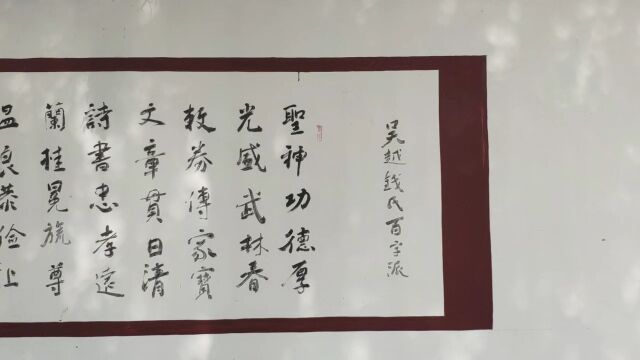 吴越錢氏百字派
聖神功德厚
光盛武林春
敎券傳家寶
文章貫日清
詩書忠孝遠
蘭桂冕旒尊
温良恭儉让